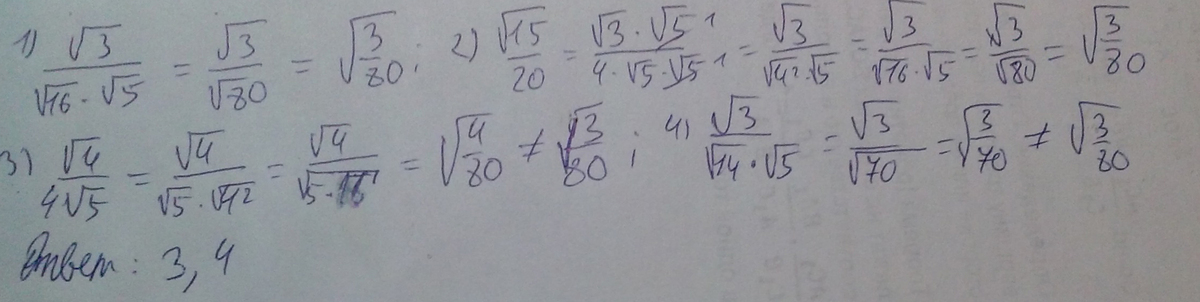 1) √3/(√16·√5) = √3/√80 = √(3/80); 2) √15/20 = (√3·√5)/(4·√5·√5) = √3/(√4²·√5) = √3/(√16·√5) = √3/√80 = √(3/80)
3) √4/(4√5) = √4/(√5·√4²) = √4/√(5·16) = √(4/80) ≠ √(3/80); 4) √3/(√14·√5) = √3/√70 = √(3/70) ≠ √(3/80)
Ответ: 3, 4